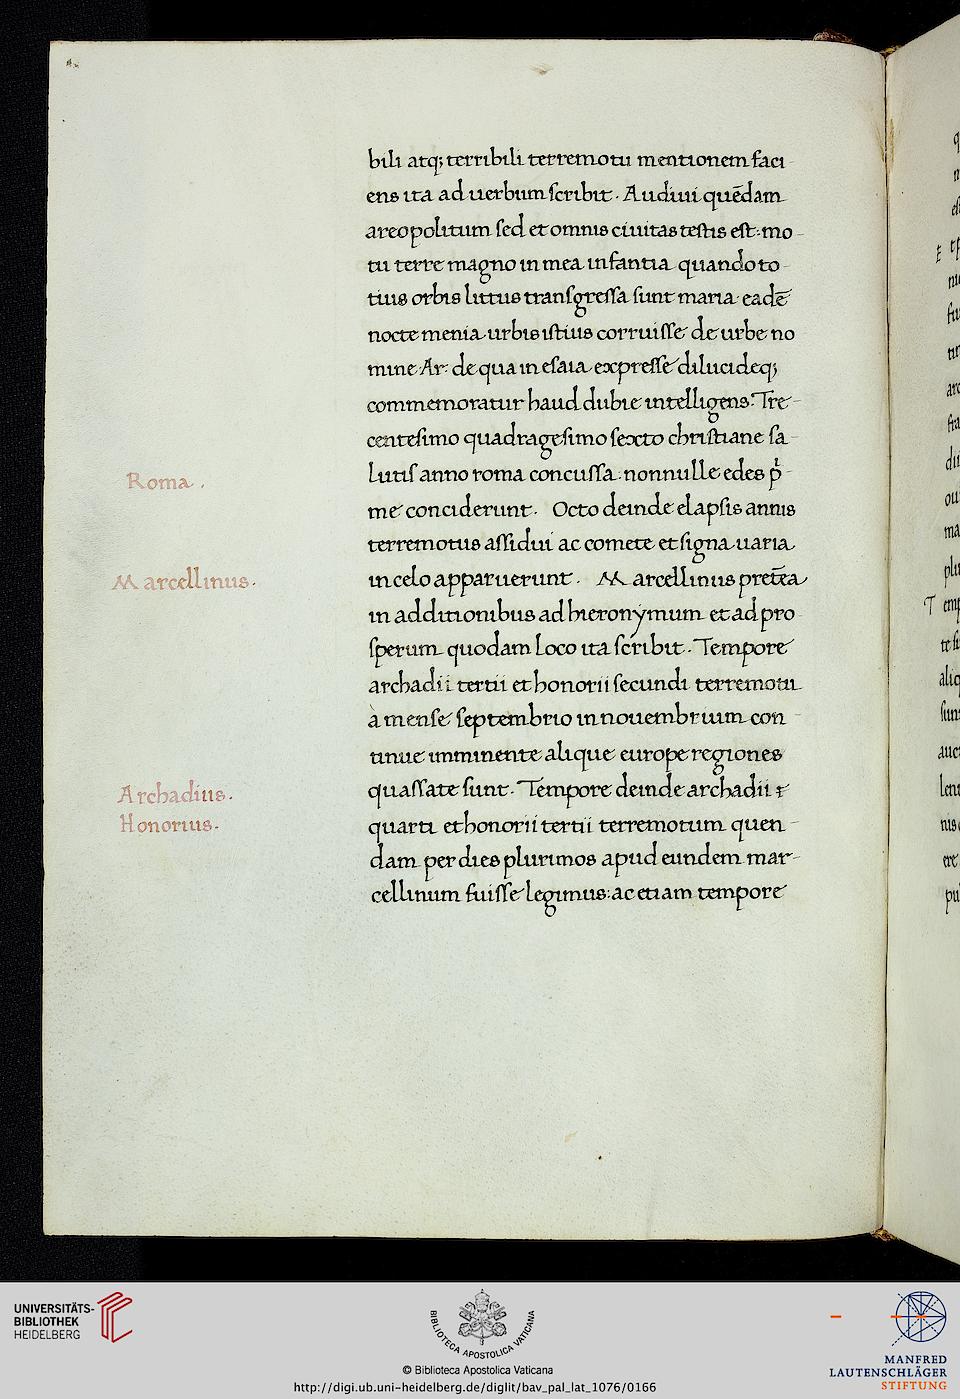 bili atq; terribili terremotu mentionem faci-
ens ita ad uerbum scribit. Audiui quēdam
areopolitum sed et omnis ciuitas testis est: mo-
tu terre magno in mea infantia quando to-
tius orbis littus transgressa sunt maria eadē
nocte menia urbis istius corruisse de urbe no
mine Ar: de qua in esaia expresse dilucideq;
commemoratur haud dubie intelligens. Tre-
centesimo quadragesimo sexto christiane sa-
lutis anno roma concussa nonnulle edes p̄-
me conciderunt. Octo deinde elapsis annis
terremotus assidui ac comete et signa uaria
in celo apparuerunt. Marcellinus pretēa
in additionibus ad hieronymum et ad pro
sperum quodam loco ita scribit. Tempore
archadii tertii et honorii secundi terremotu
à mense septembrio in nouembrium con-
tinue imminente alique europe regiones
quassate sunt. Tempore deinde archadii
quarti et honorii tertii terremotum quen-
dam per dies plurimos apud eundem mar-
cellinum fuisse legimus: ac etiam tempore
Roma.
Marcellinus.
Archadius.
Honorius.
UNIVERSITÄTS-
BIBLIOTHEK
HEIDELBERG
BIBLIOTECA APOSTOLICA VATICANA
© Biblioteca Apostolica Vaticana
http://digi.ub.uni-heidelberg.de/diglit/bav_pal_lat_1076/0166
MANFRED
LAUTENSCHLÄGER
STIFTUNG